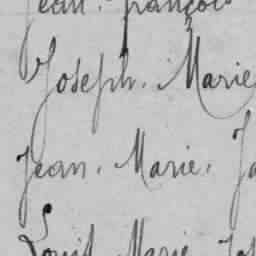 Jean. françois
Joseph. Marie
Jean. Marie. Ja
Louis Marie Jos